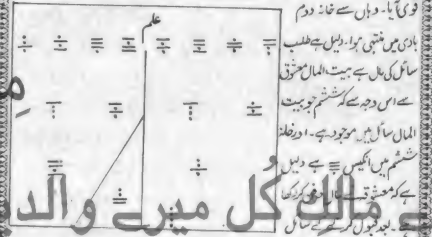 علم
قوی آیا۔ وہاں سے خانہ دوم
بادی میں منتہی ہوا۔ دلیل ہے طلب
سائل کی مال ہے بیت المال معشوق
سے اس وجہ سے کہ ششم جو بیت
المال سائل میں موجود ہے۔ اور خانہ
ششم میں انکیس ہے دلیل
ہے کہ معشوق
بعد قبول کرنے کے سائل
مالک کُل میرے والد